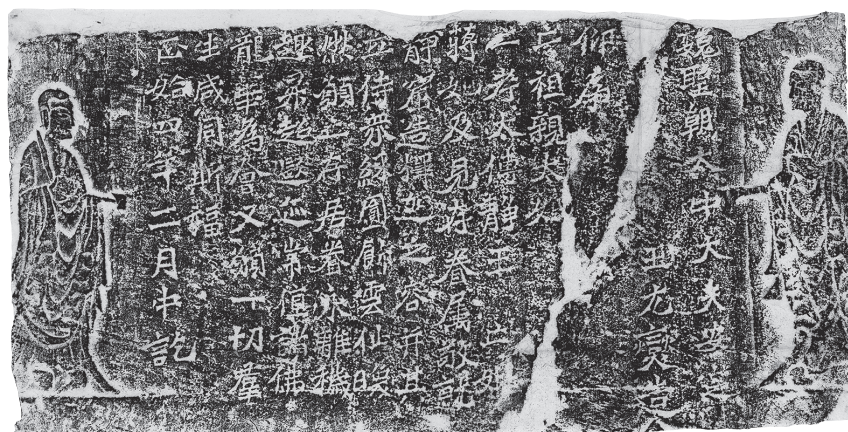 魏聖朝太中大夫安定
王元燮造
仰為
亡祖親太妃
亡考太傅靜王亡妣
蔣妃及見存眷屬敬就
靜窟造釋迦之容并其
立侍眾綵圓飾雲仙晈
然願亡存居眷永離穢
趣升超遐迹常值諸佛
龍華為會又願一切羣
生咸同斯福
正始四年二月中訖